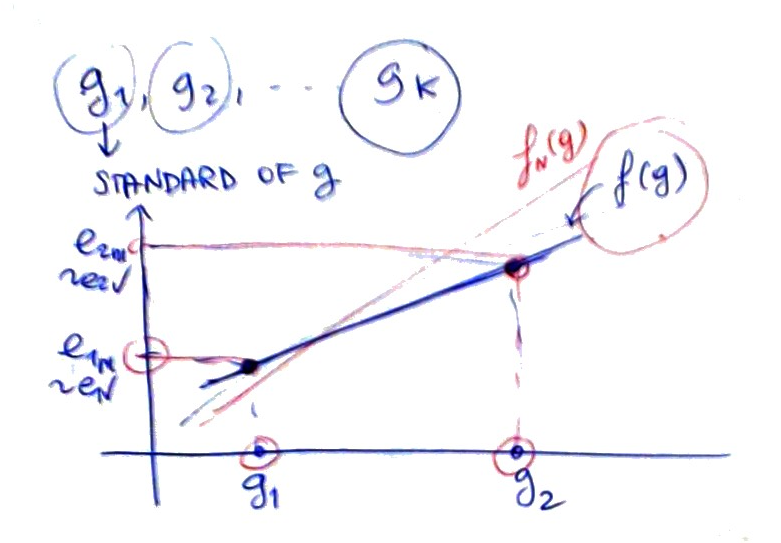 g1, g2, ... gK
STANDARD OF g
fN(g)
f(g)
e2m
~e2N
e1m
~eN
g1
g2